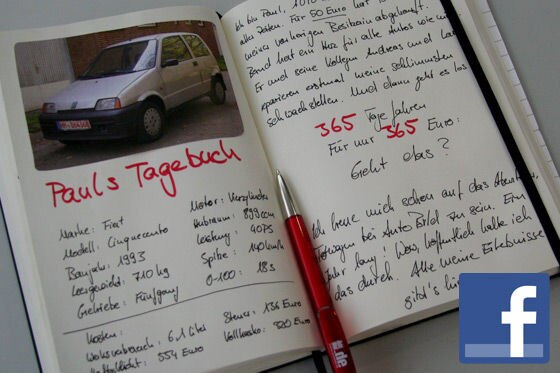 Pauls Tagebuch
Marke: Fiat
Modell: Cinquecento
Baujahr: 1993
Leergewicht: 710 kg
Getriebe: Fünfgang
Motor: Vierzylinder
Hubraum: 899 ccm
Leistung: 40 PS
Spitze: 140 km/h
0-100: 18 s
Kosten:
Werksverbrauch: 6,1 Liter
Haftpflicht: 554 Euro
Steuer: 136 Euro
Vollkasko: 320 Euro
Ich bin Paul,
alle Zeiten. Für 50 Euro hat
meinen vorherigen Besitzern abgekauft.
Bernd hat ein Herz für alle Autos wie mi
Er und seine Kollegen Andreas und La
reparieren erstmal meine schlimmsten
Schwachstellen. Und dann geht es los
365 Tage fahren
Für nur 365 Euro:
Geht das?
Ich freue mich schon auf das Abenteuer,
bei Auto Bild zu sein. Ein
Jahr lang! Wow, hoffentlich halte ich
das durch. Alle meine Erlebnisse
gibt's hi
f